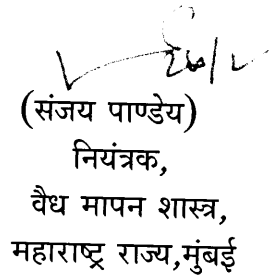 (संजय पाण्डेय)
नियंत्रक,
वैध मापन शास्त्र,
महाराष्ट्र राज्य,मुंबई